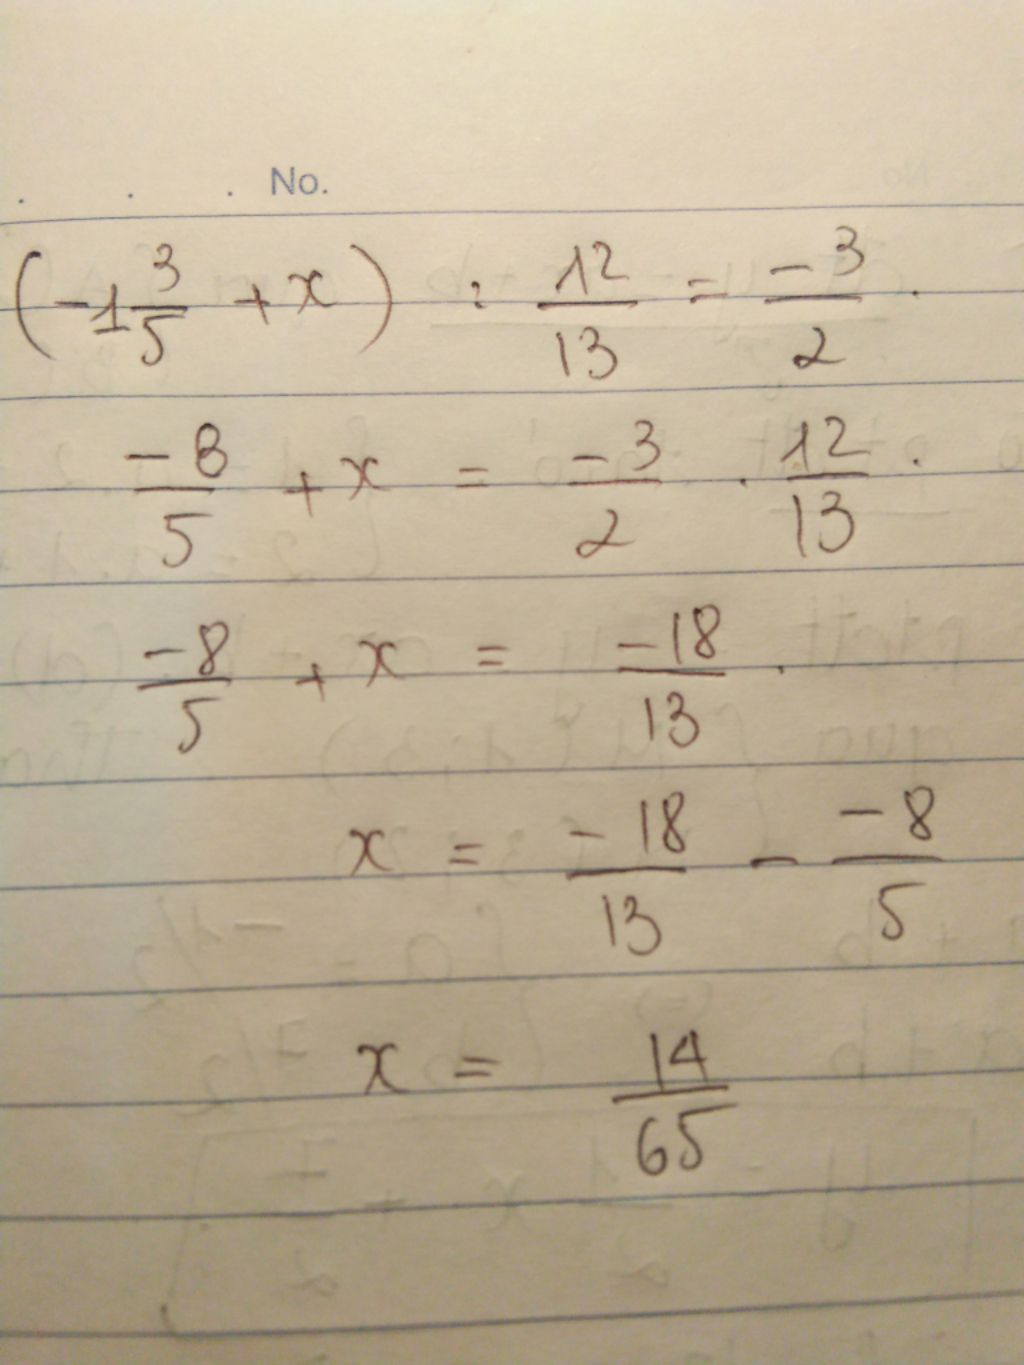 No.
(-1 3/5 + x) : 12/13 = -3/2 .
-8/5 + x = -3/2 . 12/13 .
-8/5 + x = -18/13 .
x = -18/13 - -8/5
x = 14/65